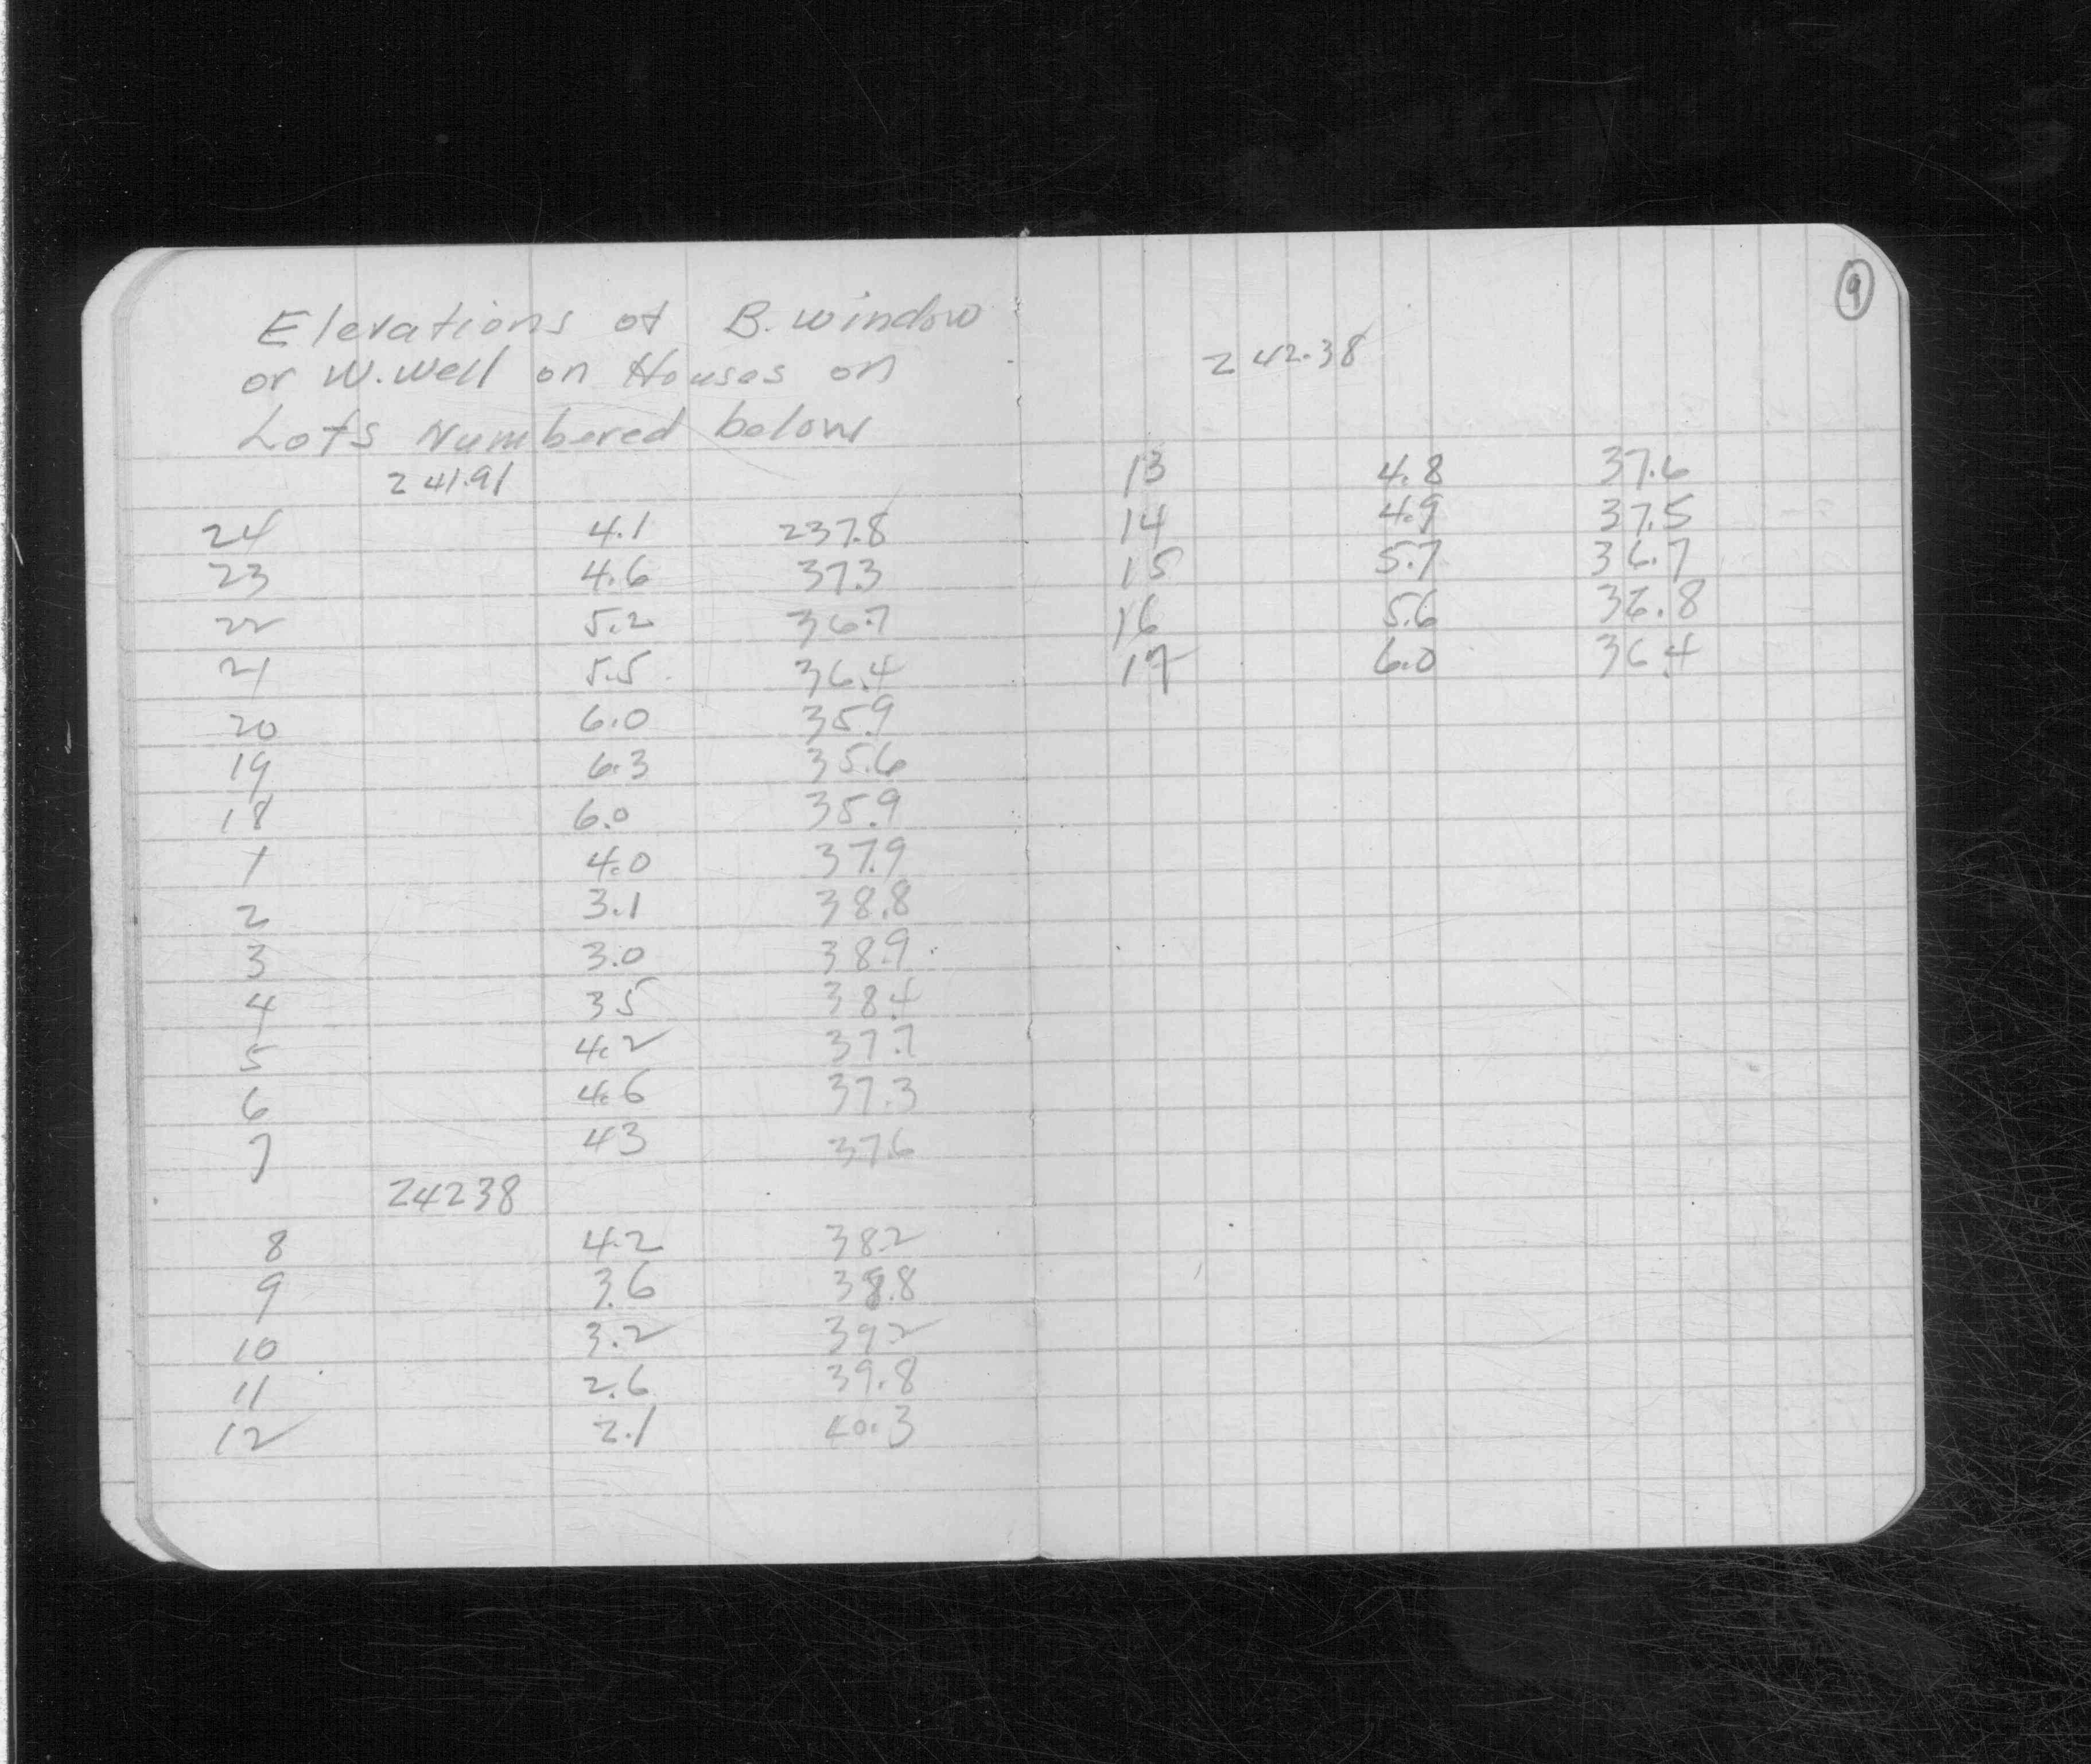 Elevations of B. window
or W. Well on Houses on
Lots Numbered below
241.91
24 4.1 237.8
23 4.6 37.3
22 5.2 36.7
21 5.5 36.4
20 6.0 35.9
19 6.3 35.6
18 6.0 35.9
1 4.0 37.9
2 3.1 38.8
3 3.0 38.9
4 3.5 38.4
5 4.2 37.7
6 4.6 37.3
7 43 37.6
24238
8 4.2 38.2
9 3.6 38.8
10 3.2 392
11 2.6 39.8
12 2.1 40.3
9
242.38
13 4.8 37.6
14 4.9 37.5
15 5.7 36.7
16 5.6 36.8
17 6.0 36.4